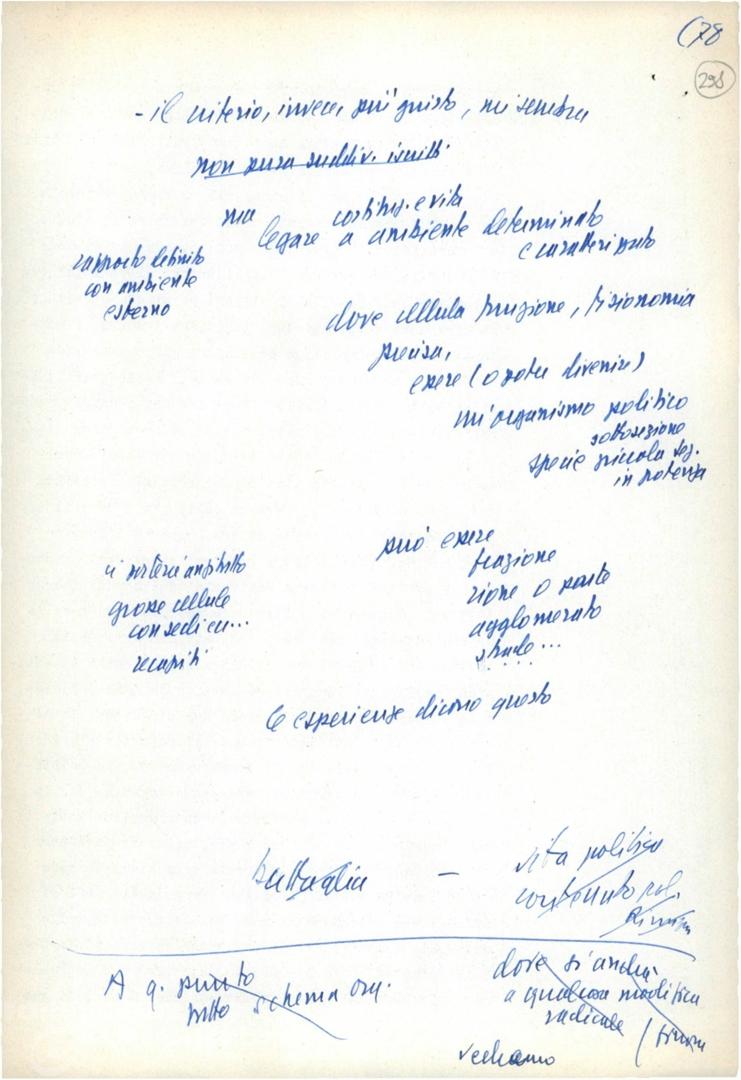 (78
298
- il criterio, invece, più giusto, mi sembra
non pura suddiv. iscritti
ma costituz. e vita
legare a ambiente determinato
e caratterizzato
rapporto definito
con ambiente
esterno
dove cellula funzione, fisionomia
precisa,
essere (o poter divenire)
un'organismo politico
sottosezione
specie piccola sez.
in potenza
può essere
frazione
rione o parte
agglomerato
strade...
grosse cellule
con sedi
recapiti
le esperienze dicono questo
battaglia — vita politica
contenuto pol.
A q. punto dove si andrà
tutto schema org. a qualcosa modifica
radicale
vediamo